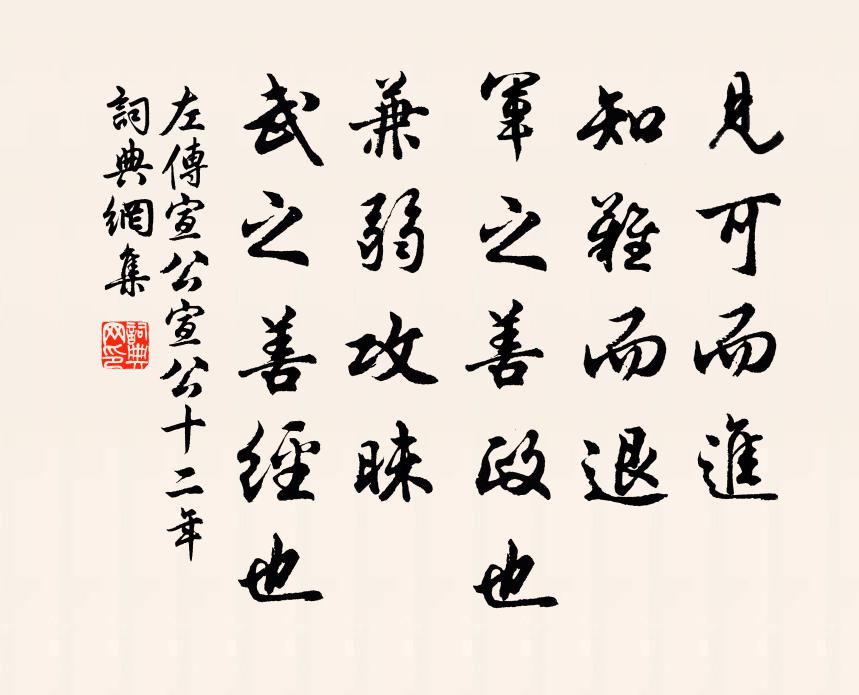 見可而進
知難而退
軍之善政也
兼弱攻昧
武之善經也
左傳宣公宣公十二年
詞典網集
詞典
网印